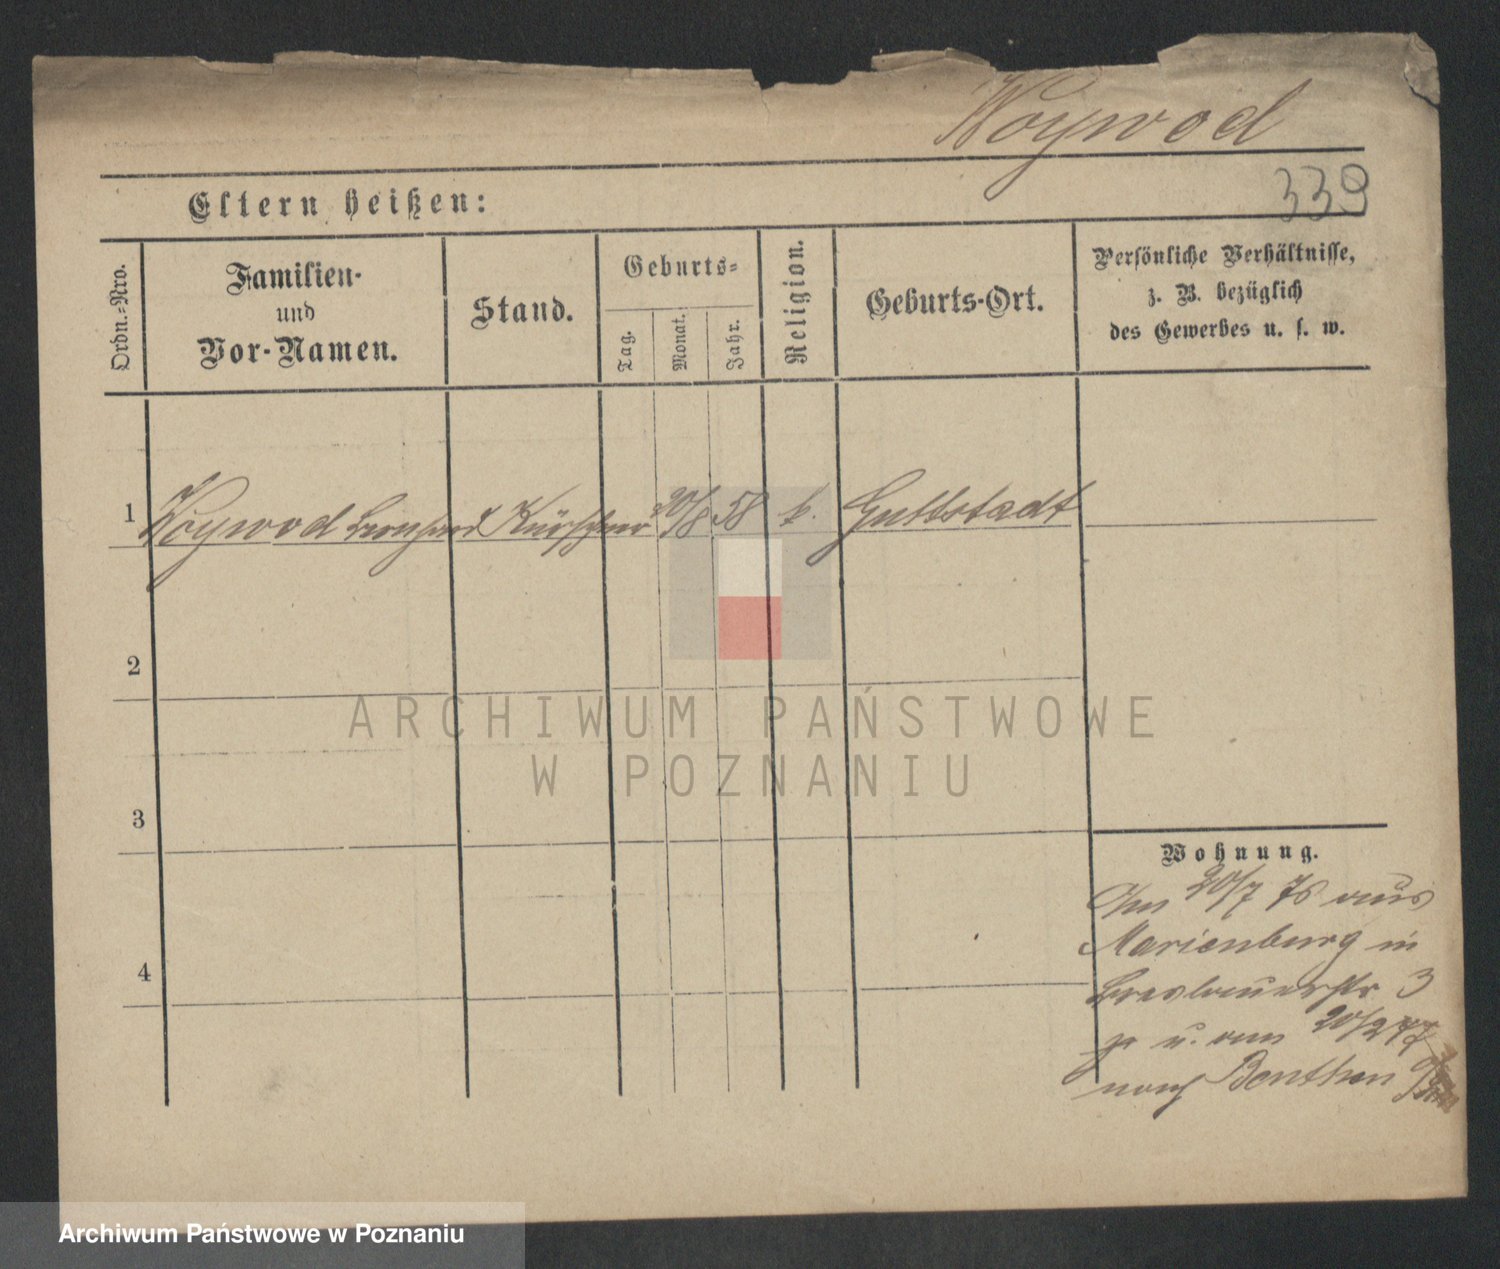 Woywod
339
Eltern heißen:
Ordn.-Nro.
Familien-
und
Vor-Namen.
Stand.
Geburts-
Tag.
Monat.
Jahr.
Religion.
Geburts-Ort.
Persönliche Verhältnisse,
z. B. bezüglich
des Gewerbes u. s. w.
1 Woywod Leonhard Kürschner 20/8 58 k. Guttstadt
2
3
4
Wohnung.
Am 20/7 76 aus
Marienburg in
Breslauerstr 3
u. am 20/2 77
nach Beuthen
ARCHIWUM PAŃSTWOWE
W POZNANIU
Archiwum Państwowe w Poznaniu